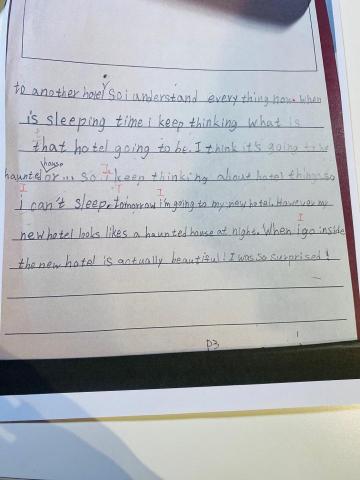 to another hotel so i understand every thing now. when
is sleeping time i keep thinking what is
that hotel going to be. I think it's going to be
haunted house or... so i keep thinking about hotel things, so
I I I
i can't sleep. tomorrow i'm going to my new hotel. However my
I
new hotel looks likes a haunted house at night. When i go inside
the new hotel is actually beautiful! I was so surprised!
P3